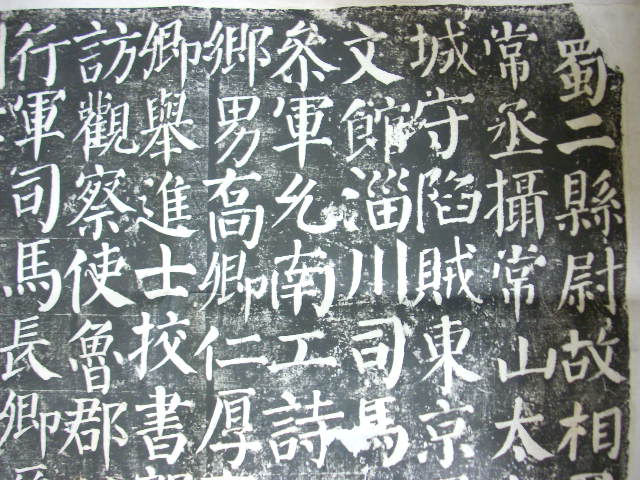 蜀二縣尉故相
常丞攝常山太
城守陷賊東京
文館淄川司馬
叅軍允南工詩
鄉男喬卿仁厚
卿舉進士挍書
訪觀察使魯郡
行軍司馬長卿